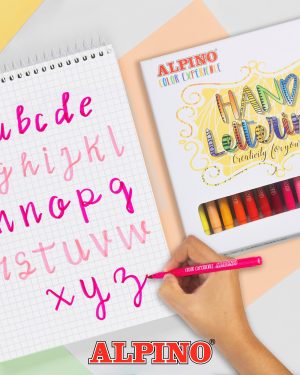 abcde
ghijkl
mnopq
rstuvw
xyz
ALPINO
COLOR EXPERIENCE
HAND
Lettering
Creativity for you
COLOR EXPERIENCE ALPINO
ALPINO